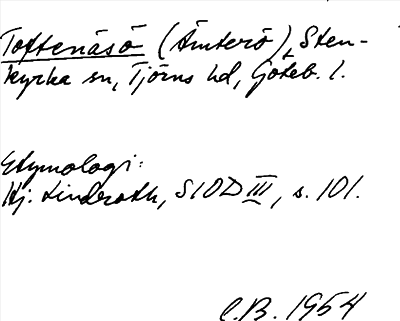 Toftenäsö (Ämterö), Sten-
kyrka sn, Tjörns hd, Göteb. l.
Etymologi:
Hj. Linderoth, SIOD III, s. 101.
C.B. 1954